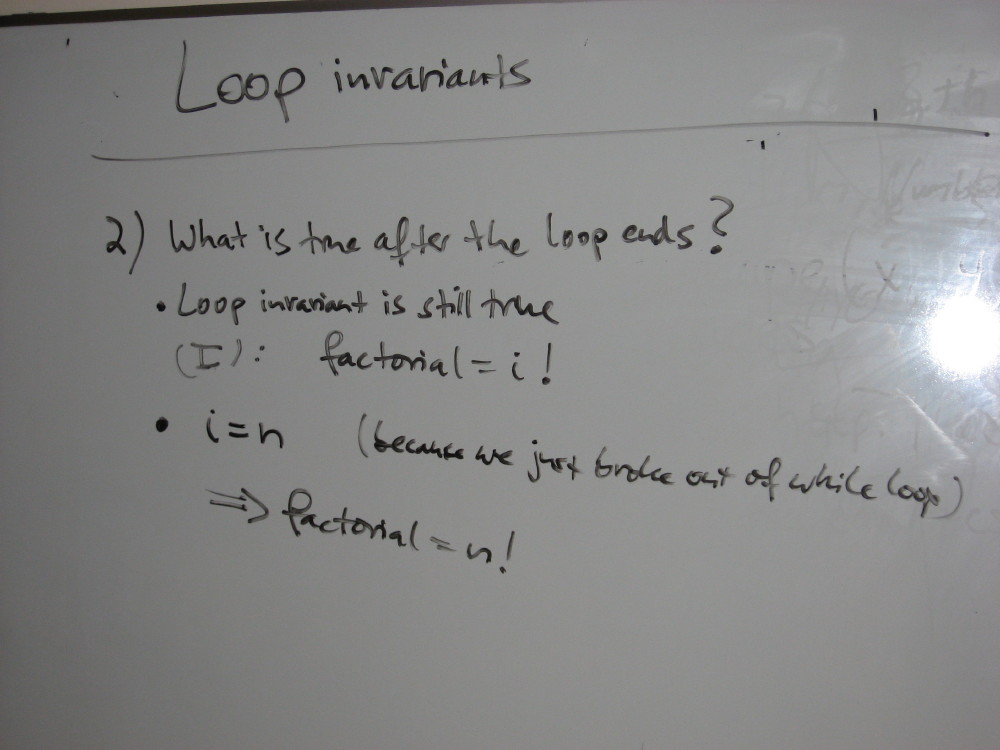 Loop invariants
2) What is true after the loop ends?
• Loop invariant is still true
(I): factorial = i!
• i=n (because we just broke out of while loop)
⇒ factorial = n!